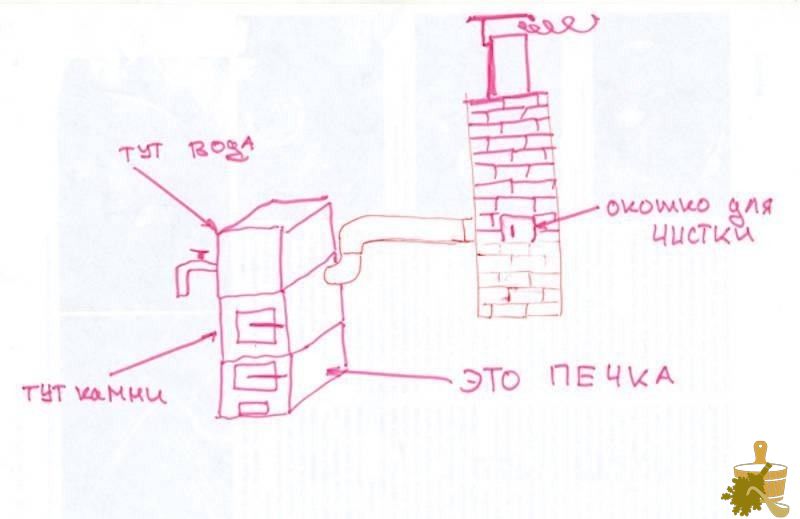 тут вода
окошко для
чистки
тут камни
это печка